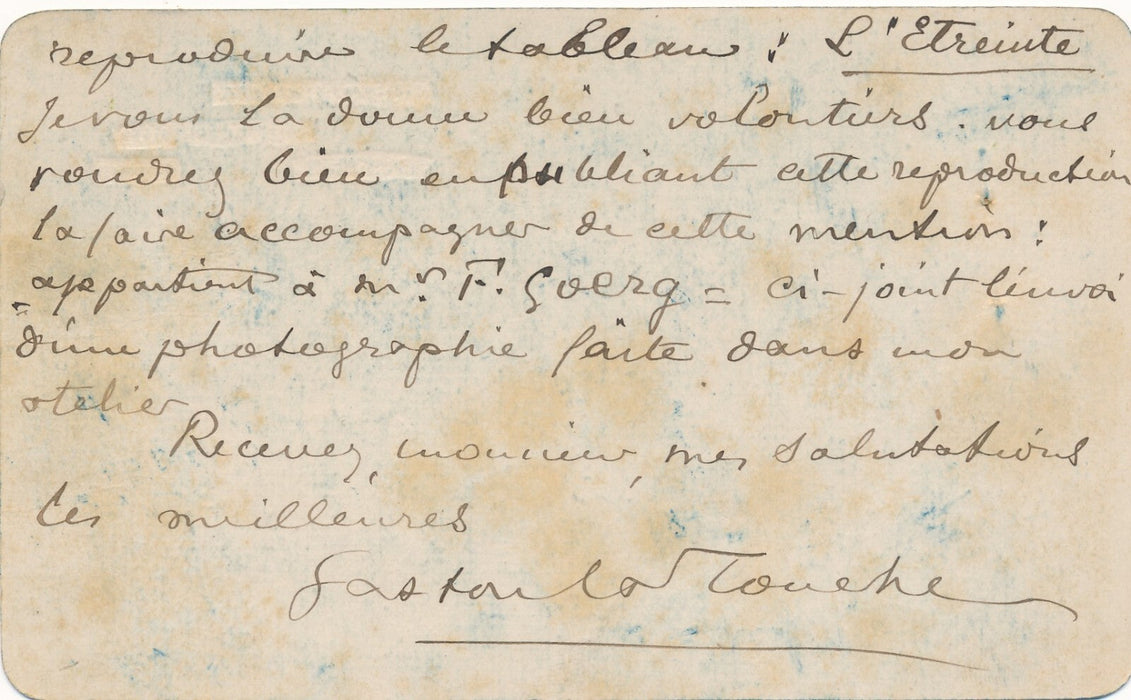 reproduire le tableau : L'Etreinte
Je vous la donne bien volontiers. vous
voudrez bien en publiant cette reproduction
la faire accompagner de cette mention :
appartient à Mr. F. Goerg = ci-joint l'envoi
d'une photographie faite dans mon
atelier
Recevez, monsieur, mes salutations
les meilleures
Gaston La Touche